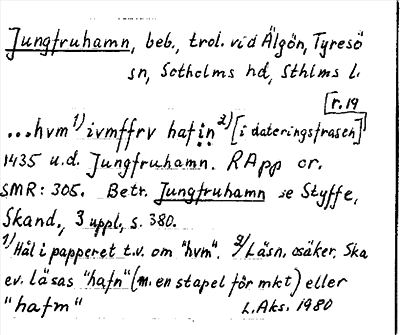 Jungfruhamn, beb., trol. vid Älgön, Tyresö
sn, Sotholms hd, Sthlms l.
[r. 19
...hvm 1) ivmffrv hafin 2) [i dateringsfrasen]
1435 u.d. Jungfruhamn. RApp or.
SMR: 305. Betr. Jungfruhamn se Styffe,
Skand., 3 uppl., s. 380.
1) Hål i papperet t.v. om "hvm". 2) Läsn. osäker. Ska
ev. läsas "hafn" (m. en stapel för mkt) eller
"hafm"
L. Aks. 1980